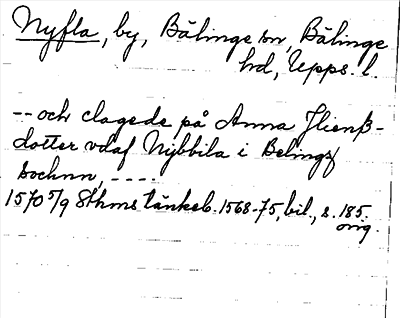 Nyfla, by, Bälinge sn, Bälinge
hd, Upps. l.
-- och clagede på Anna Jlienß-
dotter vdaf Nybbila i Belingx
sochnn, ----
1570 5/9 Sthms tänkeb. 1568-75, bil., s. 185.
orig.